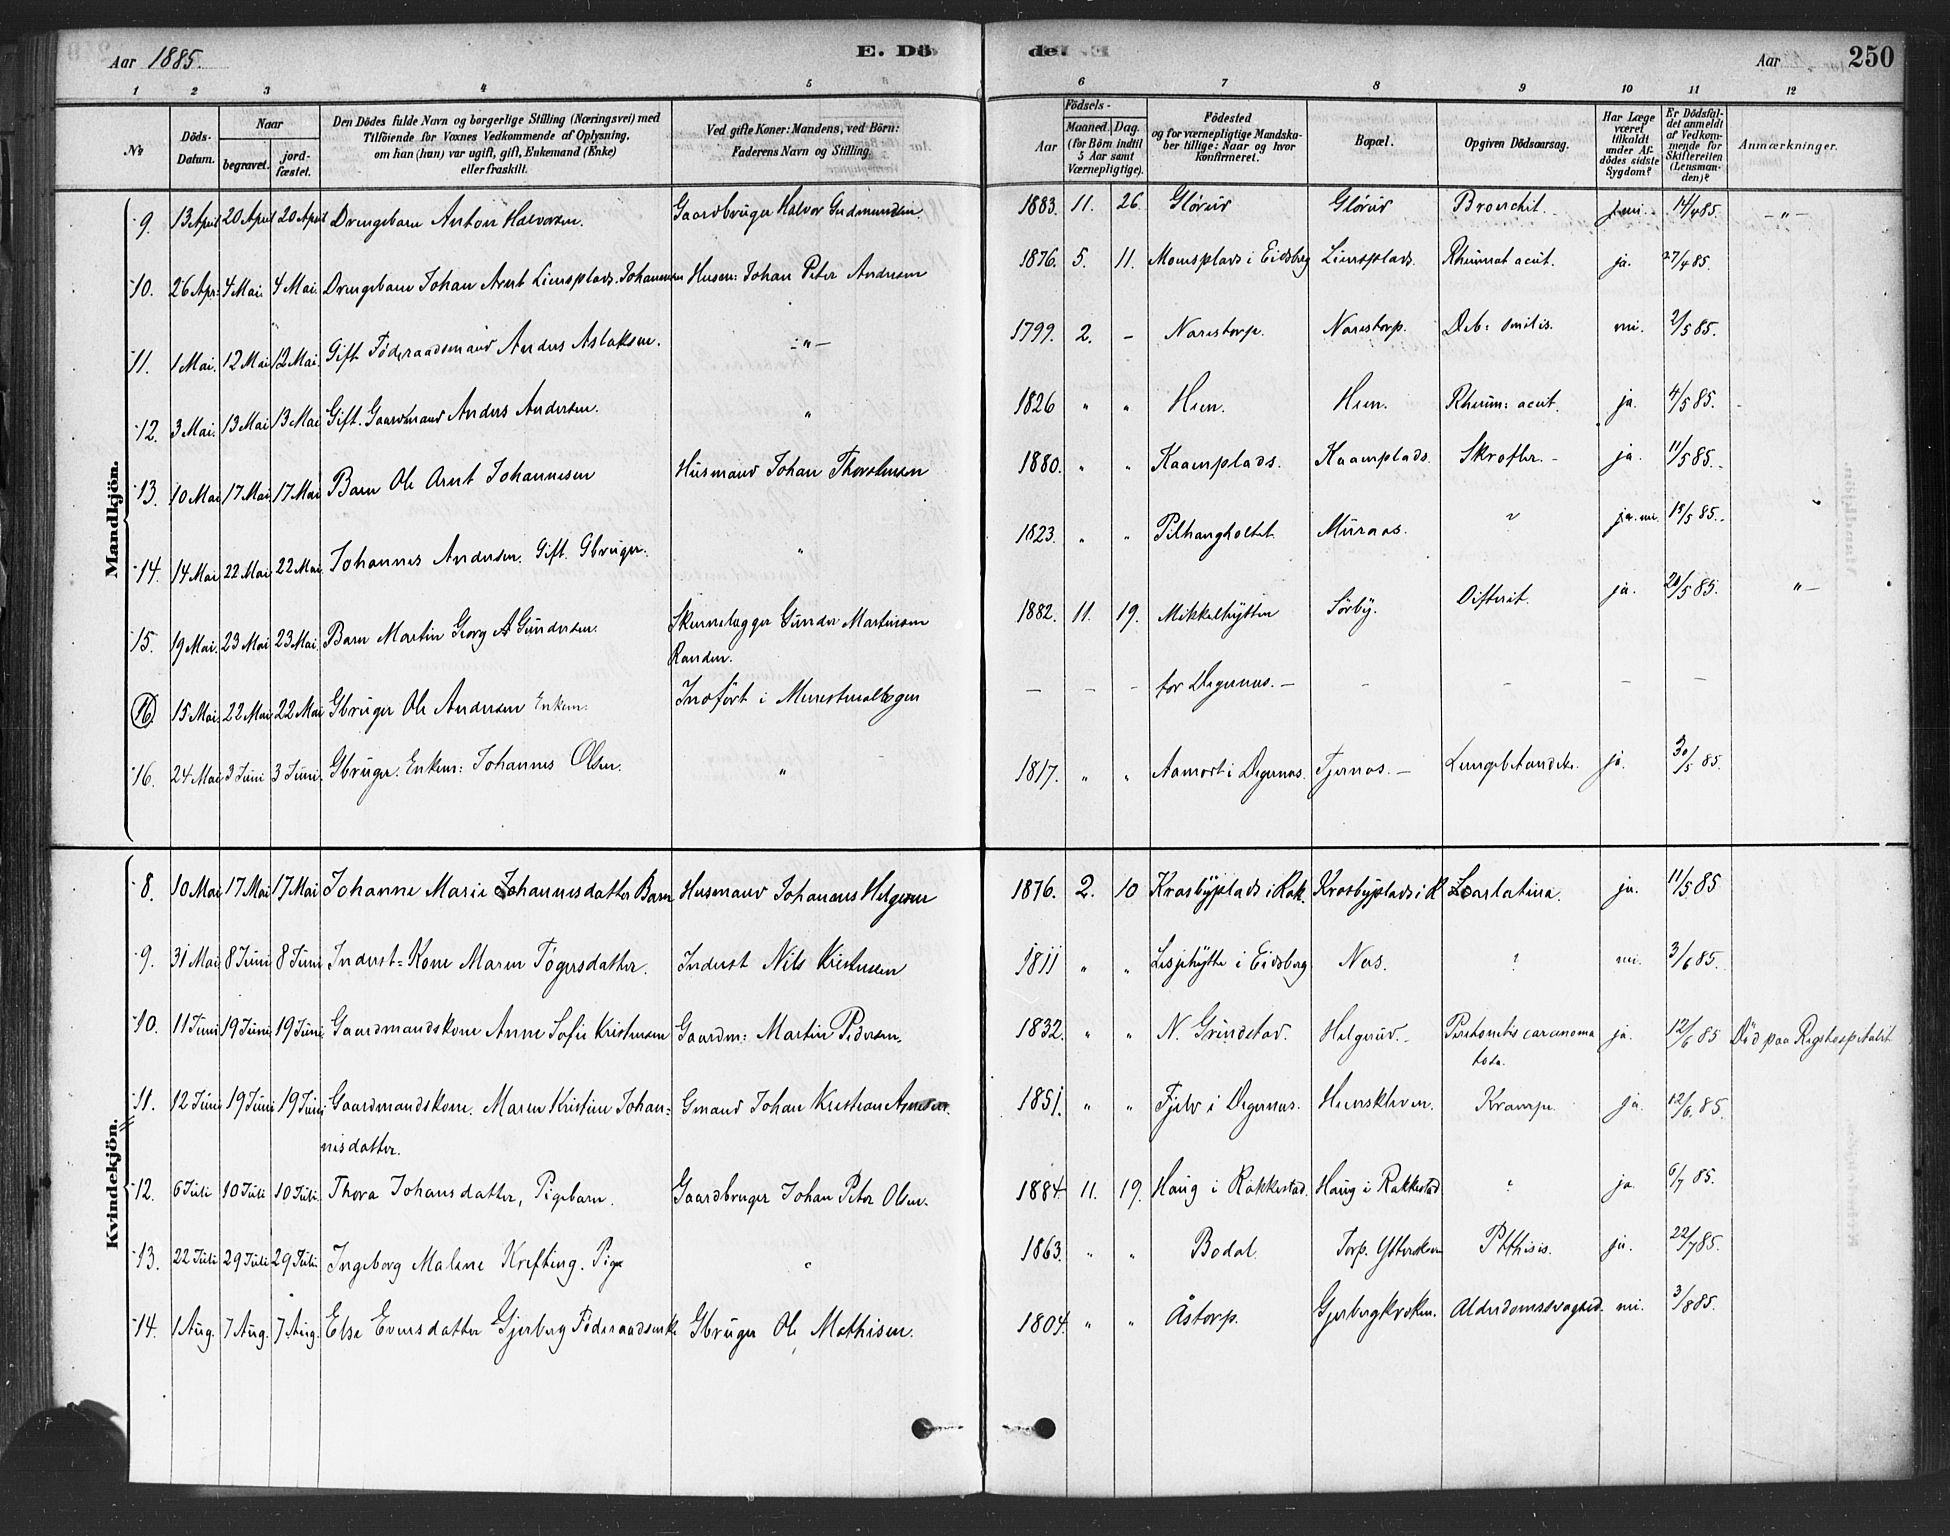 Aar 1885.
E. Dö
de
Aar
250
1 2 3 4 5 6 7 8 9 10 11 12
No
Döds-Datum.
Naar
begravet.
jordfæstet.
Den Dödes fulde Navn og borgerlige Stilling (Næringsvei) med
Tilföiende for Voxnes Vedkommende af Oplysning,
om han (hun) var ugift, gift, Enkemand (Enke)
eller fraskilt.
Ved gifte Koner: Mandens, ved Börn:
Faderens Navn og Stilling.
Födsels-
Aar
Maaned.
Dag.
(for Börn indtil
5 Aar samt
Værnepligtige).
Födested
og for værnepligtige Mandska-
ber tillige: Naar og hvor
konfirmeret.
Bopæl.
Opgiven Dödsaarsag.
Har Læge
været
tilkaldt
under Af-
dödes sidste
Sygdom?
Er Dödsfal-
det anmeldt
af Vedkom-
mende for
Skifteretten
(Lensman-
den)?
Anmærkninger.
Mandkjön.
9. 13 April 20 April 20 April Drengebarn Anton Halvorsen. Gaardbruger Halvor Gudmundsen 1883. 11. 26. Glörud Glörud Bronchit. nei. 14/4 85. -"-
10. 26 Apr: 4 Mai. 4 Mai. Drengebarn Johan Arnt Liensplads Johannesen Husm: Johan Peter Andersen 1876. 5. 11. Momsplads i Eidsberg Liensplads. Rheumat acut. ja. 27/4 85.
11. 1 Mai. 12 Mai 12 Mai. Gift Föderaadsmand Anders Aslaksen. -"- 1799. 2. - Narestorp. Narestorp. Deb: senilis. nei. 2/5 85.
12. 3 Mai. 13 Mai 13 Mai Gift. Gaardmand Anders Andersen. " 1826 " " Hien. Hien. Rheum: acut. ja. 4/5 85.
13. 10 Mai 17 Mai 17 Mai Barn Ole Arnt Johannesen Husmand Johan 1880. " " Kaanplads. Kaanplads. Skrofler. ja. 11/5 85.
14. 14 Mai 22 Mai 22 Mai. Johannes Andersen. Gift. Gbruger. " 1823. " " Muraas. ja. nei. 15/5 85.
15. 19 Mai. 23 Mai 23 Mai. Barn Martin Georg A Gundersen. Gunder Martinsen
Randen. 1882. 11. 19. Mikkelhytten Sörby. Difterit. ja. 20/5 85. "-
(16) 15 Mai. 22 Mai 22 Mai Gbruger Ole Andersen Enkem. Indfört i Ministerialbogen - - - for Degernes. - - - - -
16. 24 Mai 3 Juni 3 Juni. Gbruger. Enkem: Johannes Olsen. " 1817. " " Aamodt i Degernes. Tjernes. - Lungebetændelse. ja. 30/5 85.
Kvindekjön.
8. 10 Mai 17 Mai 17 Mai Johanne Marie Johannesdatter Barn Husmand Johannes Helgesen 1876. 2. 10 Krosbyplads i Rak. Krosbyplads i R Scarlatina. ja. 11/5 85
9. 31 Mai 8 Juni 8 Juni Inderst=Kone Maren Tögersdatter. Inderst Nils Kristensen 1811 " " i Eidsberg Nes. ? nei. 3/6 85.
10. 11 Juni 19 Juni 19 Juni Gaardmandskone Anne Sofie Kristensen Gaardm: Martin Pedersen. 1832. " " N. Grindstad. Helgerud. Peritonitis carcinoma
tosa. ja. 12/6 85 Död paa Rigshospitalet
11. 12 Juni 19 Juni 19 Juni Gaardmandskone. Maren Kristine Johan-
nisdatter. Gmand Johan Kristian 1851. " " Fjeld i Degernes. Hienskleven. Krampe. ja. 12/6. 85.
12. 6 Juli 10 Juli 10 Juli. Thora Johansdatter, Pigebarn. Gaardbruger Johan Peter Olsen. 1884. 11. 19. Haug i Rakkestad. Haug i Rakkestad ja 6/7 85.
13. 22 Juli 29 Juli 29 Juli. Ingeborg Malene Krefting. Pige " 1863. " " Bodal. Torp. Phthisis. ja. 22/7 85.
14. 1 Aug. 7 Aug. 7 Aug. Else Eversdatter Gjerberg Föderaadsenke Gbruger Ole Mathisen. 1804. " " Åstorp. Gjerbergkroken. Alderdomssvaghed. nei. 3/8 85.